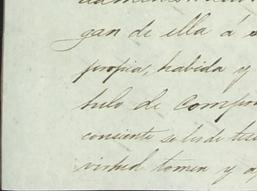 gan de ella á
propia, habida y
tulo de compra
consiente se les de
virtud tomen y